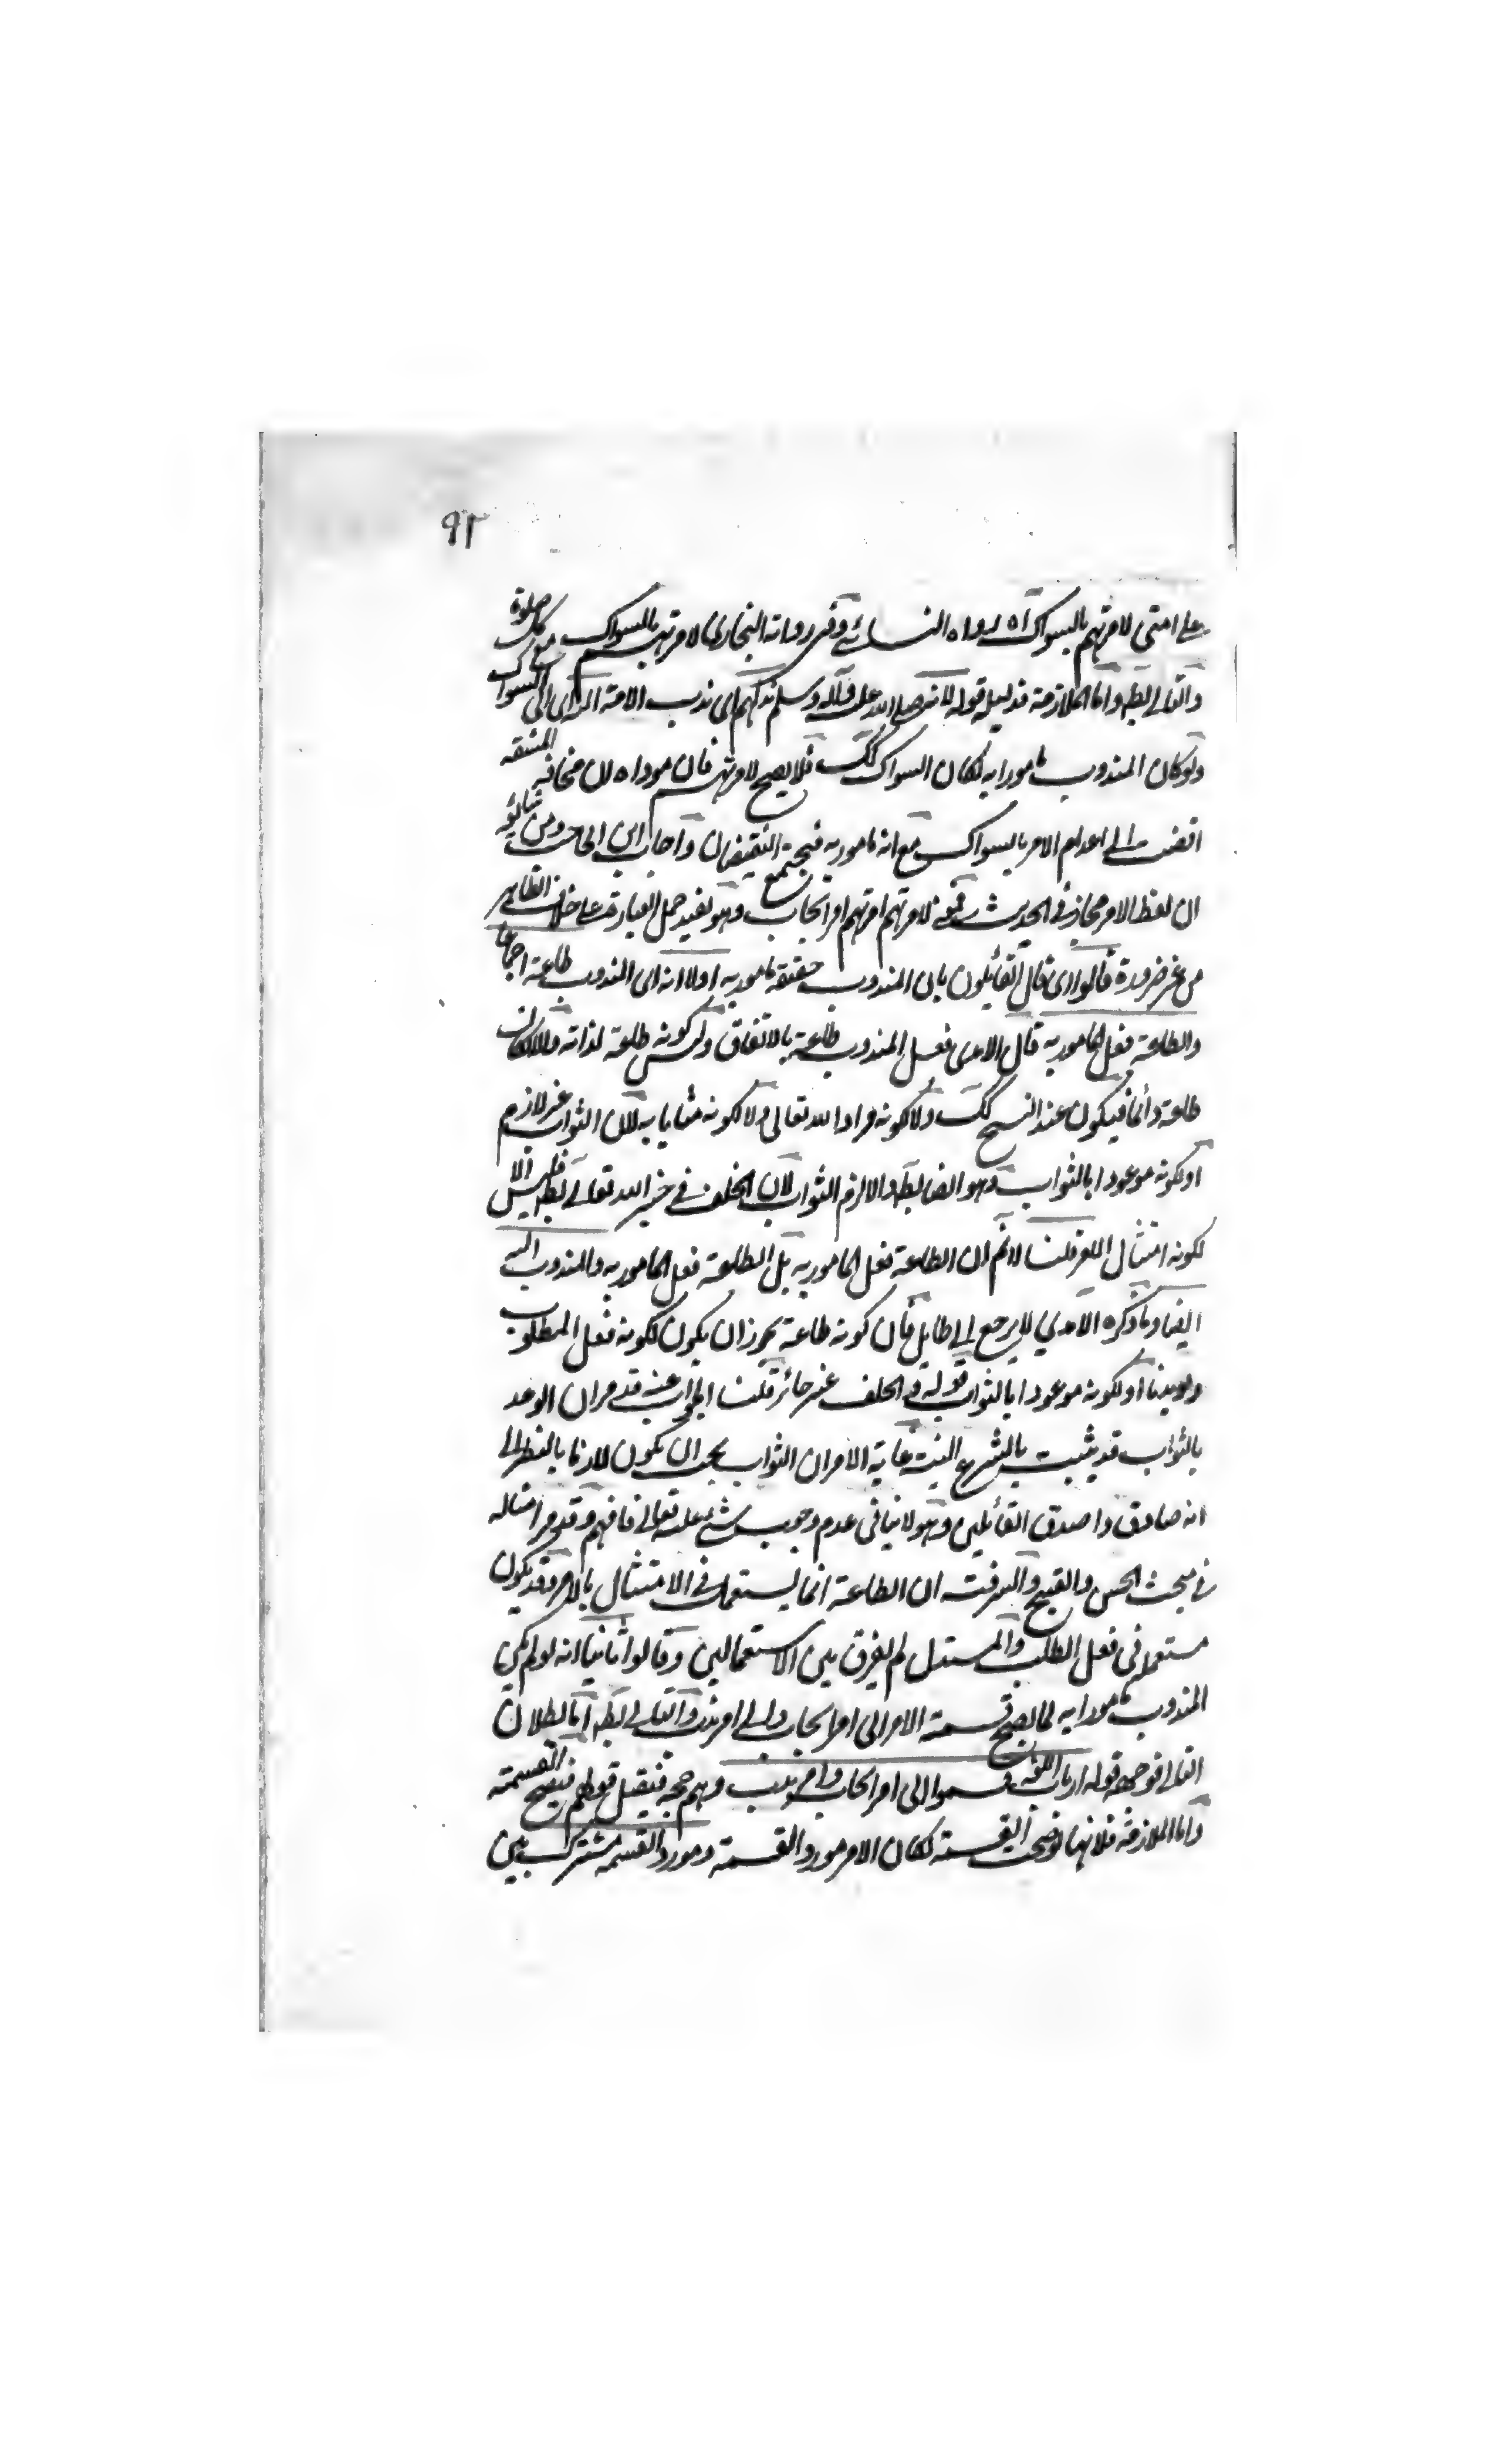 ٩٢
على امتى لامرتهم بالسواك اه رواه النسائے وفى رواية البخارى لامرتهم بالسواك مع كل صلوة
والتالى بط واما الملازمة فدليله قوله لانه صلى الله عليه واله وسلم ندبهم اى ندب الامة الى السواك
ولو كان المندوب مامورا به لكان السواك كك فلا يصح لامرتهم فان موداه لان مخافة المشقه
افضت الى اعدام الامر بالسواك مع انه مامور به فيجتمع النقيضان واجاب ابن الحاجب ومن
ان لفظ الامر مجاز فى الحديث فمعنى لامرتهم امرتهم امر ايجاب وهو يفيد حمل العبارة على خلاف الظاهر
من غير ضرورة قالوا اى قال القائلون بان المندوب حقيقة مامور به اولا انه اى المندوب طاعة اجماعا
والطاعة فعل المامور به قال الامدى فعل المندوب طاعة بالاتفاق وليس كونه طاعة لذاته والا لكان
طاعة دائما فيكون عند النسخ كك ولا لكونه مرادا لله تعالى ولا لكونه مثابا به لان الثواب غير لازم
او لكونه موعودا بالثواب وهو ايضا بط والا لزم الثواب لان الخلف فى خبر الله تعالى بط فليس الا
لكونه امتثال الامر قلنا لا نم ان الطاعة فعل المامور به بل الطاعة فعل المامور به والمندوب اليه
ايضا وما ذكره الامدي لا يرجع الى طايل فان كونه طاعة يجوز ان يكون لكونه فعل المطلوب
او لكونه موعودا بالثواب قوله والخلف غير جائز قلنا الجواب عنه قد مر ان الوعد
بالثواب قد يثبت بالشرع البتة غاية الامر ان الثواب يجب ان يكون لازما بالنظر الى
انه صادق واصدق القائلين وهو لا ينافى عدم وجوب شئ عليه تعالى فافهم وقد مر امثاله
فى مبحث الحسن والقبح والسر فيه ان الطاعة انما يستعمل فى الامتثال بالامر وقد يكون
مستعملا فى فعل الطلب والمستدل لم يفرق بين الاستعمالين وقالوا ثانيا انه لو لم يكن
المندوب مامورا به لما يصح قسمة الامر الى امر ايجاب والى امر ندب والتالى بط اما بطلان
التالى فوجهه قوله ارباب اللغة قسموا الى امر ايجاب وامر ندب وهم حجة فيقبل قولهم فيصح القسمة
واما الملازمة فلانها لو صحت القسمة لكان الامر مورد القسمة ومورد القسمة مشترك بين